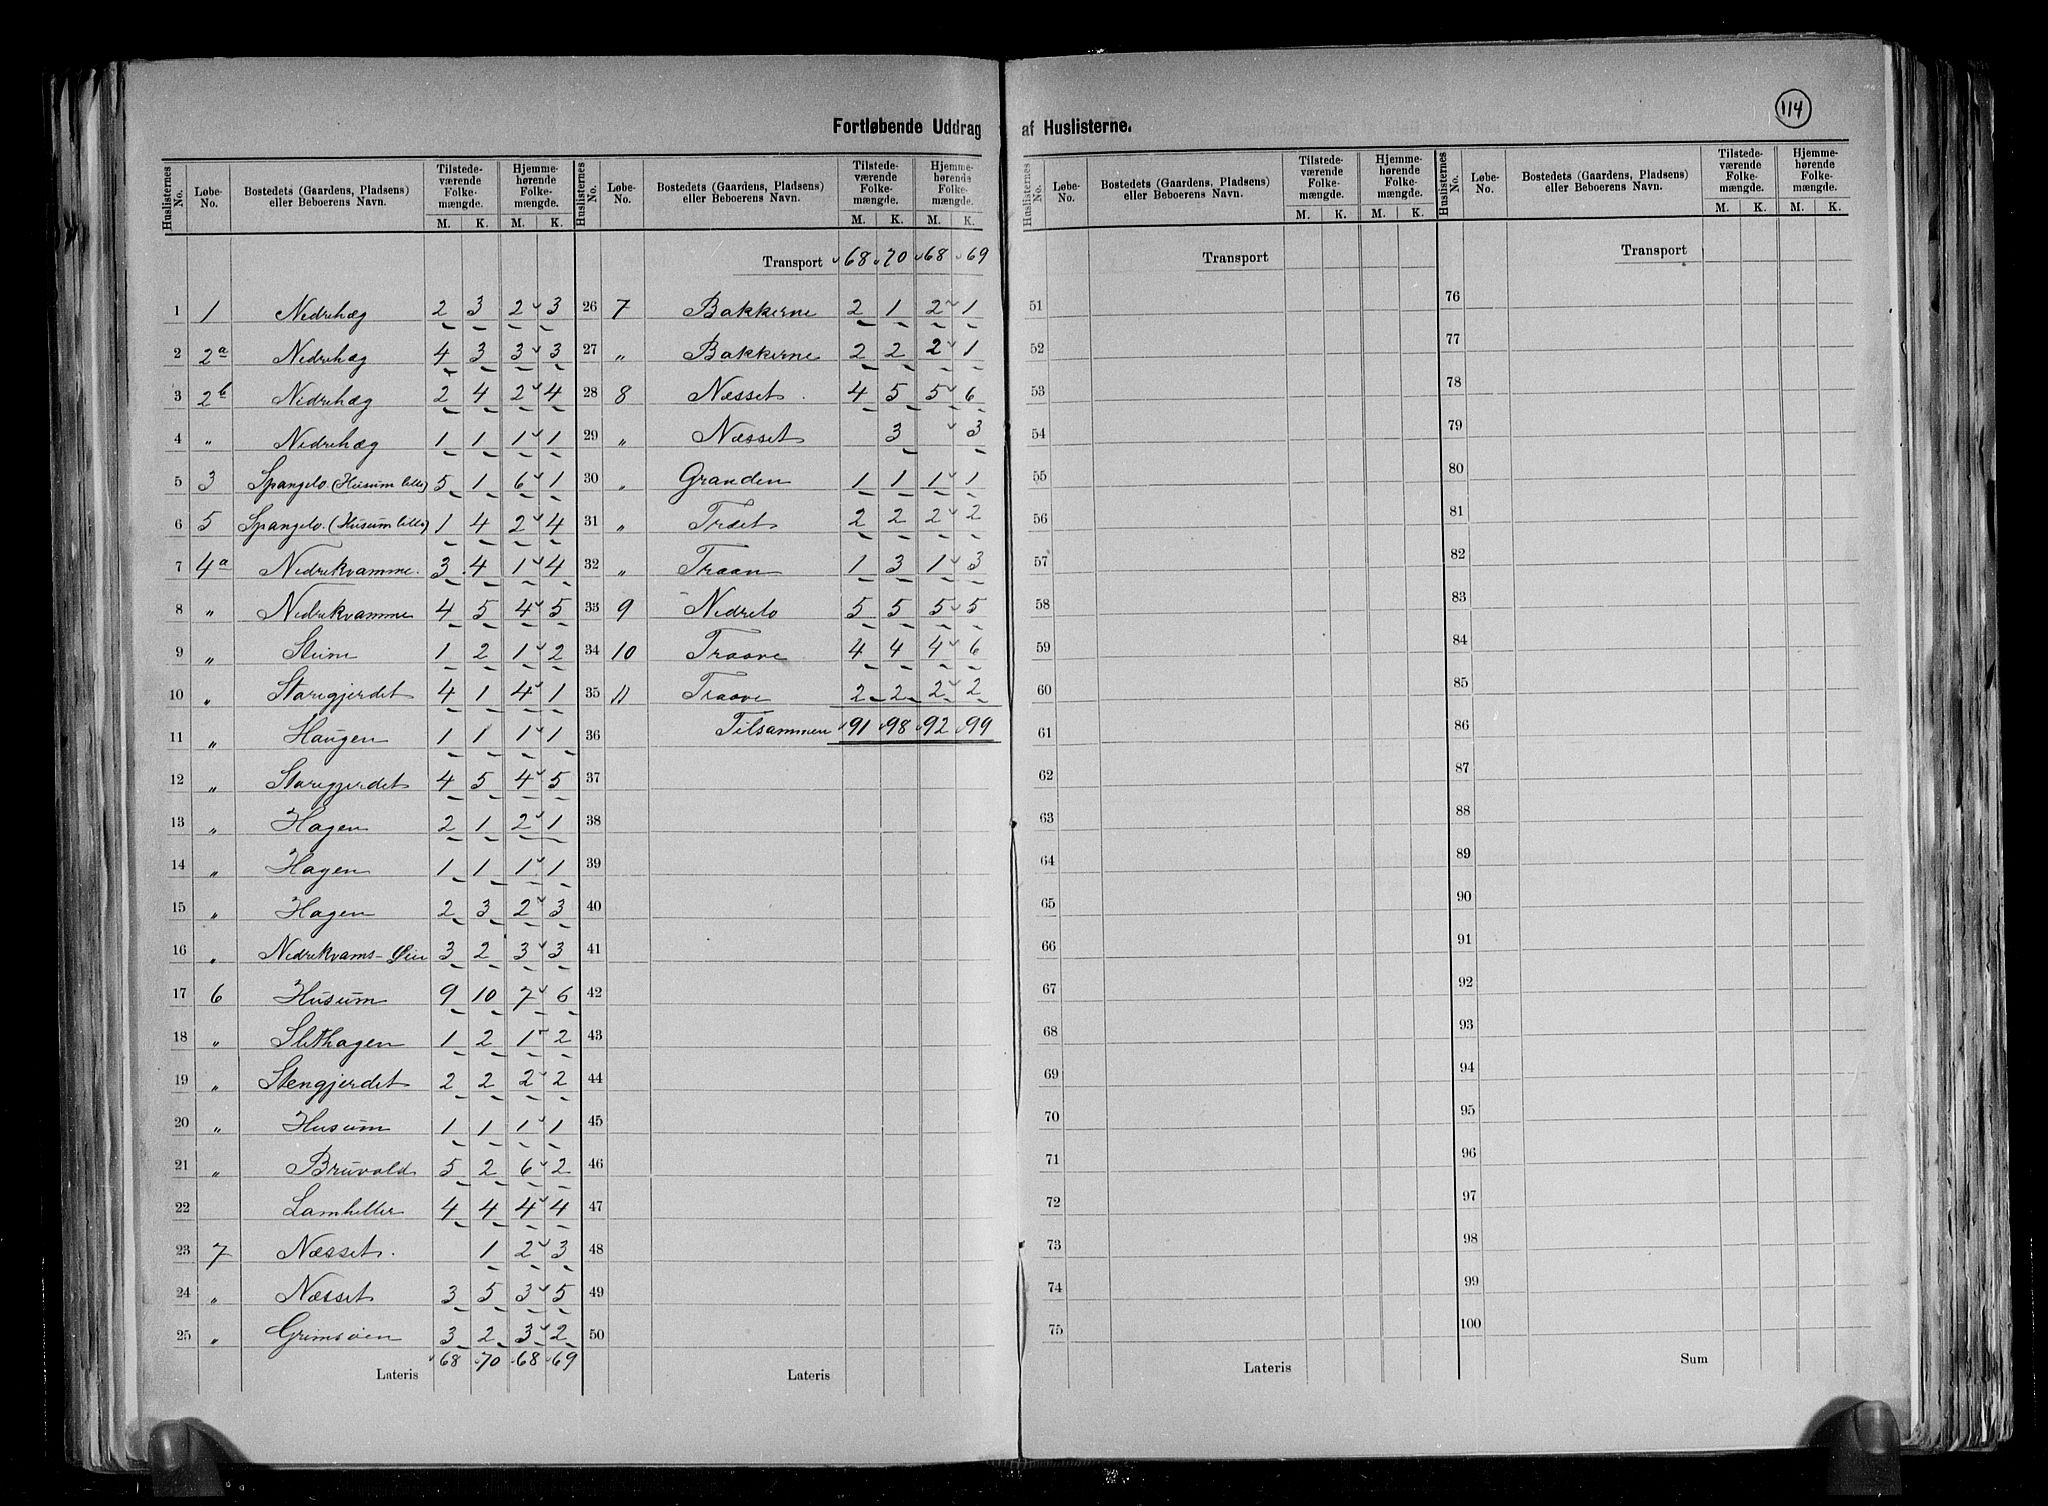 114
Fortløbende Uddrag af Huslisterne.
Huslisternes No. Løbe-No. Bostedets (Gaardens, Pladsens) eller Beboerens Navn. Tilstedeværende Folkemængde. M. K. Hjemmehørende Folkemængde. M. K.
1 1 Nedrehæg 2 3 2 3
2 2a Nedrehæg 4 3 3 3
3 2b Nedrehæg 2 4 2 4
4 " Nedrehæg 1 1 1 1
5 3 Spangelo (Husum lille) 5 1 6 1
6 5 Spangelo. (Husum lille) 1 4 2 4
7 4a Nedrekvamme. 3 4 1 4
8 " Nedrekvamme 4 5 4 5
9 " Steine 1 2 1 2
10 " Staregjerdet 4 1 4 1
11 " Haugen 1 1 1 1
12 " Staregjerdet 4 5 4 5
13 " Hagen 2 1 2 1
14 " Hagen 1 1 1 1
15 " Hagen 2 3 2 3
16 " Nedrekvams- 3 2 3 3
17 6 Husum 9 10 7 6
18 " Slethagen 1 2 1 2
19 " Stengjerdet 2 2 2 2
20 " Husum 1 1 1 1
21 " Bruvold 5 2 6 2
22 Lamheller 4 4 4 4
23 7 Næsset. 1 2 3
24 " Næsset 3 5 3 5
25 " Grimsøen 3 2 3 2
Lateris 68 70 68 69
Huslisternes No. Løbe-No. Bostedets (Gaardens, Pladsens) eller Beboerens Navn. Tilstedeværende Folkemængde. M. K. Hjemmehørende Folkemængde. M. K.
Transport 68 70 68 69
26 7 Bakkerne 2 1 2 1
27 " Bakkerne 2 2 2 1
28 8 Næsset 4 5 5 6
29 " Næsset 3 3
30 " Granden 1 1 1 1
31 " Træet 2 2 2 2
32 " Traan 1 3 1 3
33 9 Nedrelo 5 5 5 5
34 10 Traave 4 4 4 6
35 11 Traave 2 2 2 2
36 Tilsammen 91 98 92 99
37
38
39
40
41
42
43
44
45
46
47
48
49
50
Lateris
Huslisternes No. Løbe-No. Bostedets (Gaardens, Pladsens) eller Beboerens Navn. Tilstedeværende Folkemængde. M. K. Hjemmehørende Folkemængde. M. K.
Transport
51
52
53
54
55
56
57
58
59
60
61
62
63
64
65
66
67
68
69
70
71
72
73
74
75
Lateris
Huslisternes No. Løbe-No. Bostedets (Gaardens, Pladsens) eller Beboerens Navn. Tilstedeværende Folkemængde. M. K. Hjemmehørende Folkemængde. M. K.
Transport
76
77
78
79
80
81
82
83
84
85
86
87
88
89
90
91
92
93
94
95
96
97
98
99
100
Sum